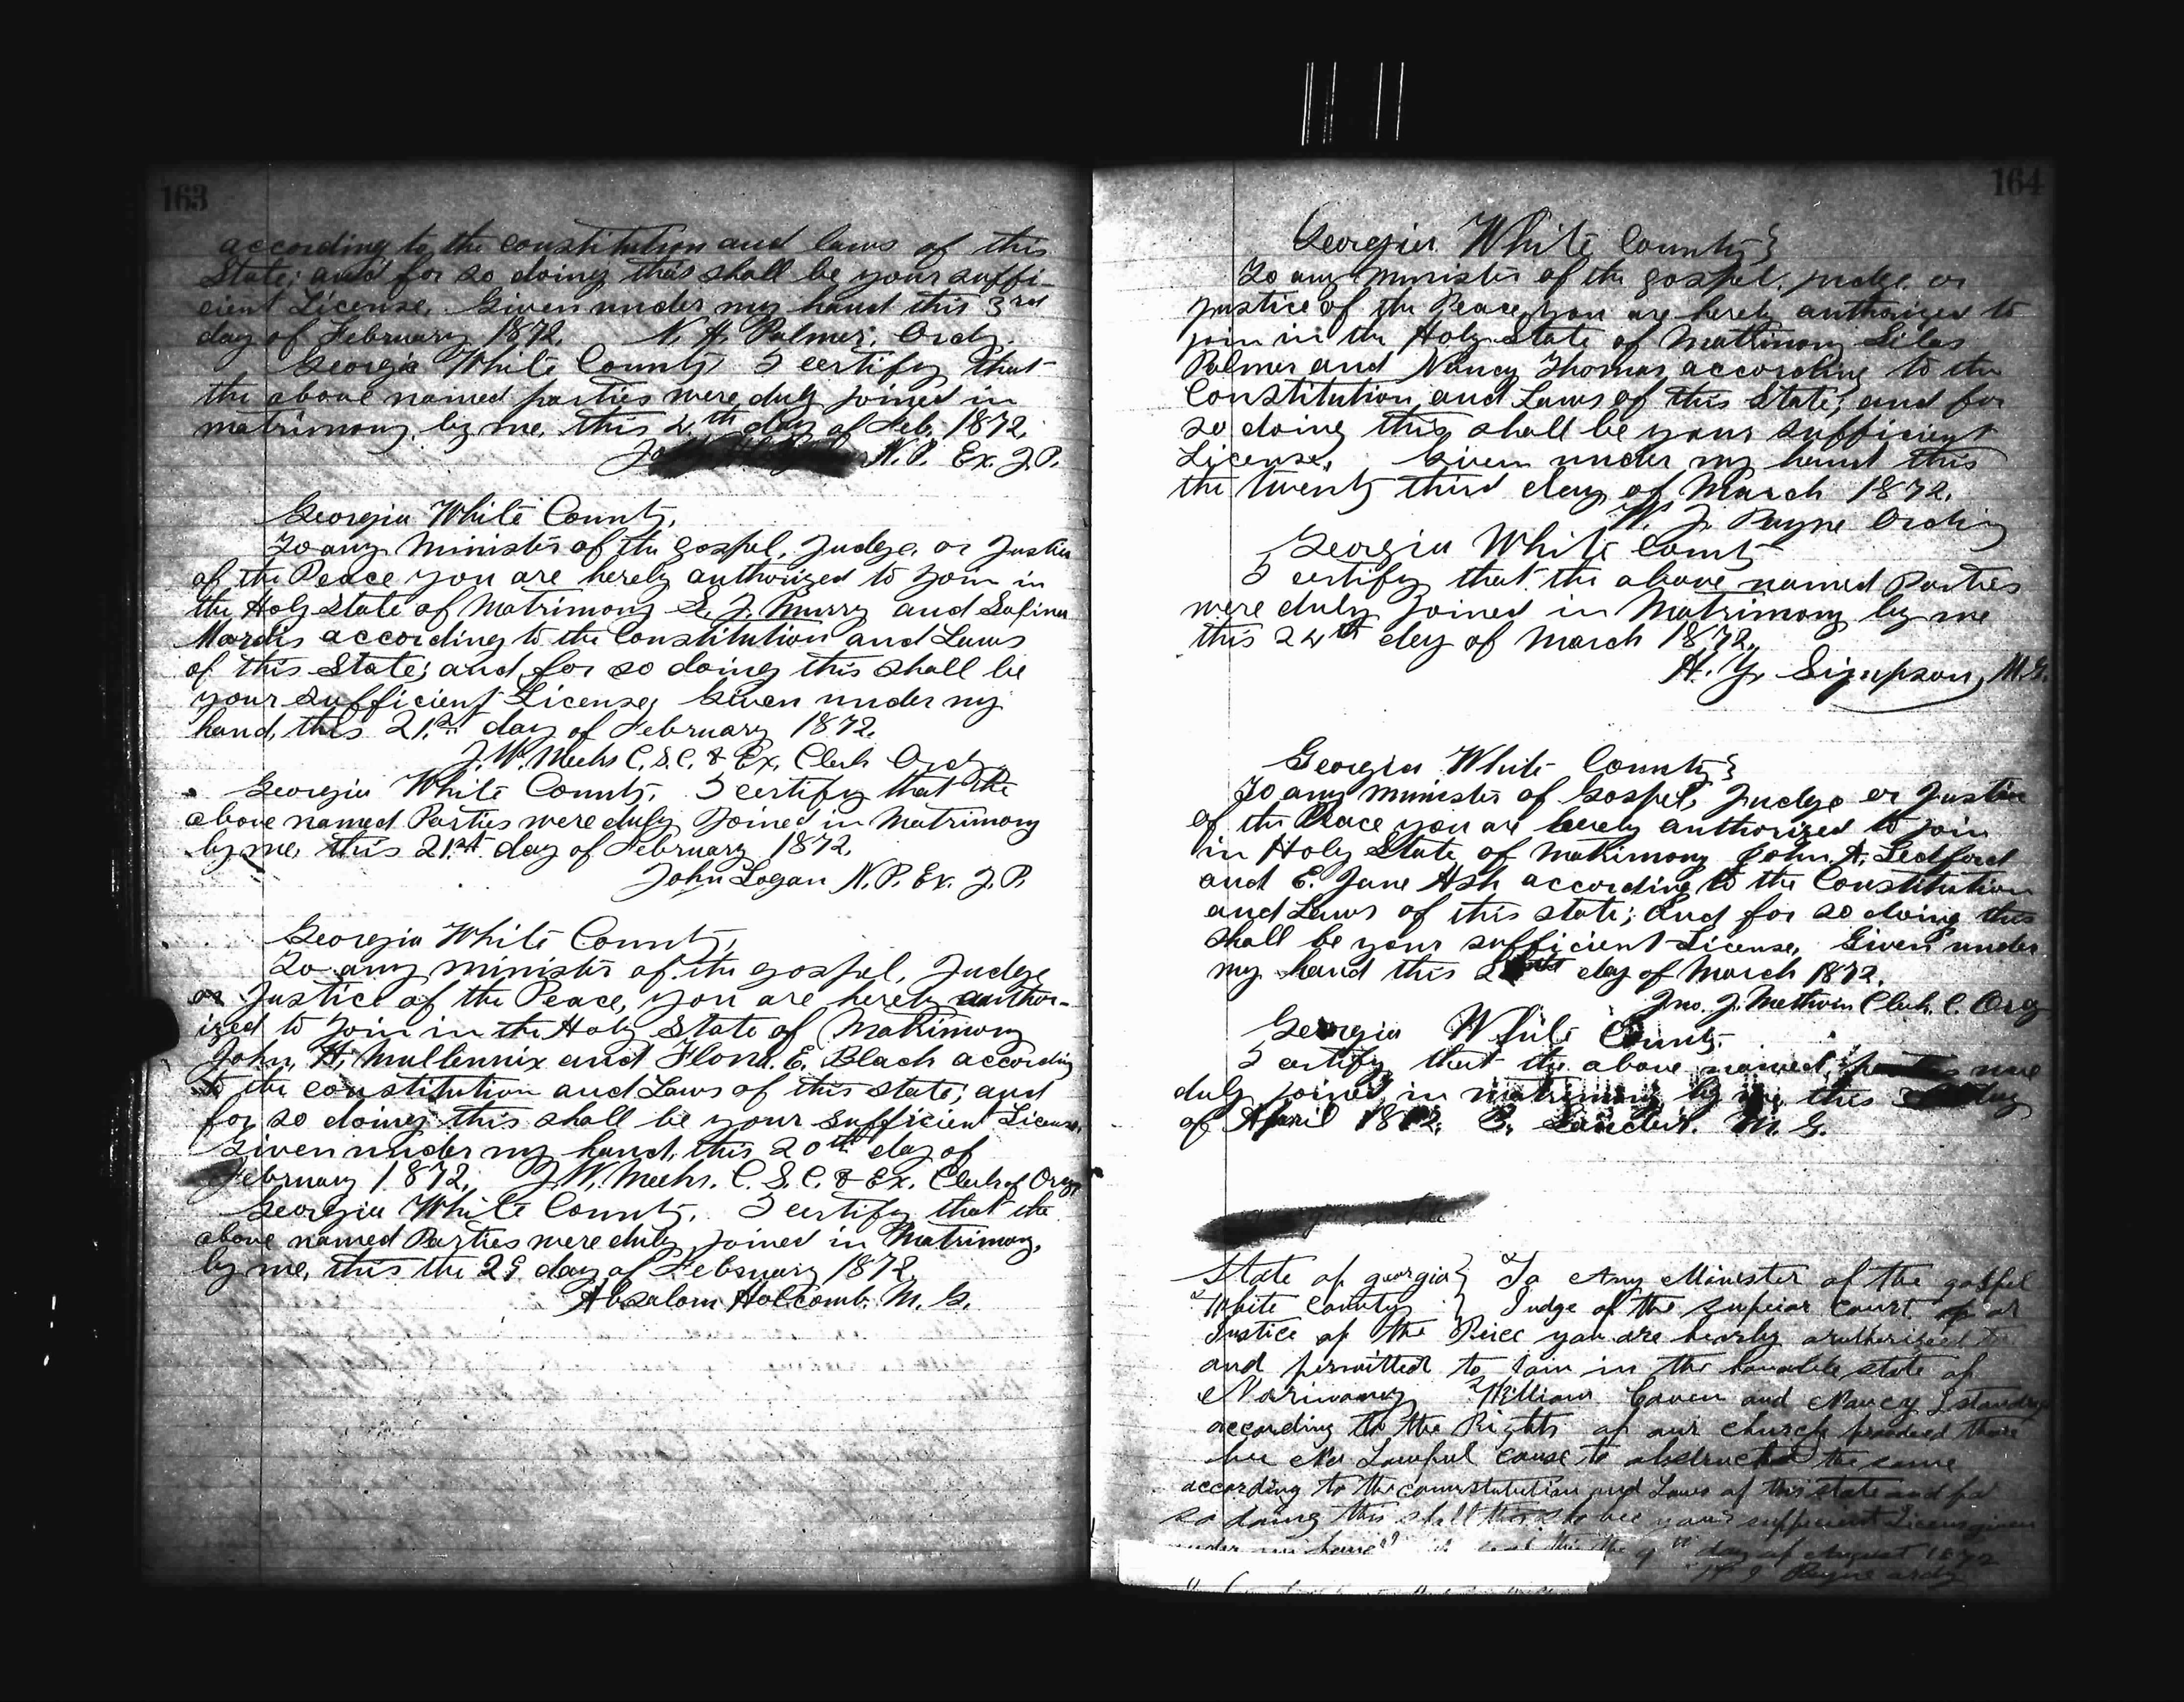 163
according to the constitution and laws of this
State; and for so doing this shall be your suffi-
cient License. Given under my hand this 3rd
day of February 1872. N. H. Palmer, Ordy.
Georgia White County I certify that
the above named parties were duly joined in
matrimony, by me, this 4th day of Feb. 1872.
N.P. Ex. J.P.
Georgia White County,
To any Minister of the gospel, Judge, or Justice
of the Peace you are hereby authorized to join in
the Holy State of Matrimony S. J. Murry and Safina
Mardis according to the Constitution and Laws
of this State; and for so doing this shall be
your sufficient License, Given under my
hand, this 21st day of February 1872.
J. W. Meeks C.S.C. & Ex. Clerk Ordy.
Georgia White County. I certify that the
above named Parties were duly Joined in Matrimony
by me, this 21st day of February 1872.
John Logan N.P. Ex. J.P.
Georgia White County,
To any minister of the gospel, Judge
or Justice of the Peace, you are hereby author-
ized to join in the Holy State of Matrimony
John, H. Mullennix and Flora. E. Black according
to the constitution and Laws of this state; and
for so doing this shall be your sufficient License.
Given under my hand, this 20th day of
February 1872. J. W. Meeks. C.S.C. & Ex. Clerk of Ordy
Georgia White County. I certify that the
above named Parties were duly joined in Matrimony,
by me, this the 29 day of February 1872
Absalom Holcomb. M. G.
164
Georgia White County}
To any minister of the gospel, judge, or
justice of the Peace, you are hereby authorized to
join in the Holy State of Mattimony Silas
Palmer and Nancy Thomas according to the
Constitution and Laws of this State; and for
so doing this shall be your sufficient
License. Given under my hand this
the twenty third day of March 1872.
W. J. Payne Ordiny
Georgia White County
I certify that the above named Parties
were duly Joined in Matrimony by me
this 24th day of March 1872.
H. Y. Simpson, M.G.
Georgia White County}
To any minister of Gospel, Judge or Justice
of the Peace you are hereby authorized to join
in Holy State of Matrimony John. A. Ledford
and E. Jane Ash according to the Constitution
and Laws of this state; And for so doing this
shall be your sufficient License. Given under
my hand this day of March 1872.
Jno. J. Methvin Clerk. C. Org
Georgia White County.
I certify that the above named, parties were
duly joined in matrimony by me this day
of April 1872. M. G.
State of georgia} To Any Minister of the gospel
White County } Judge of the Supeior Court or
Justice of the Peice you are hearby autherized to
and permitted to join in the honable state of
William and Nancy
according to the Rights of our church provided there
bee No Lawful cause to abstructed the same
according to the constatution and Laws of this state and for
so doing this shall this sha bee your sufficient License given
under my hand this the 9th day of August 1872
W J Payne ordy